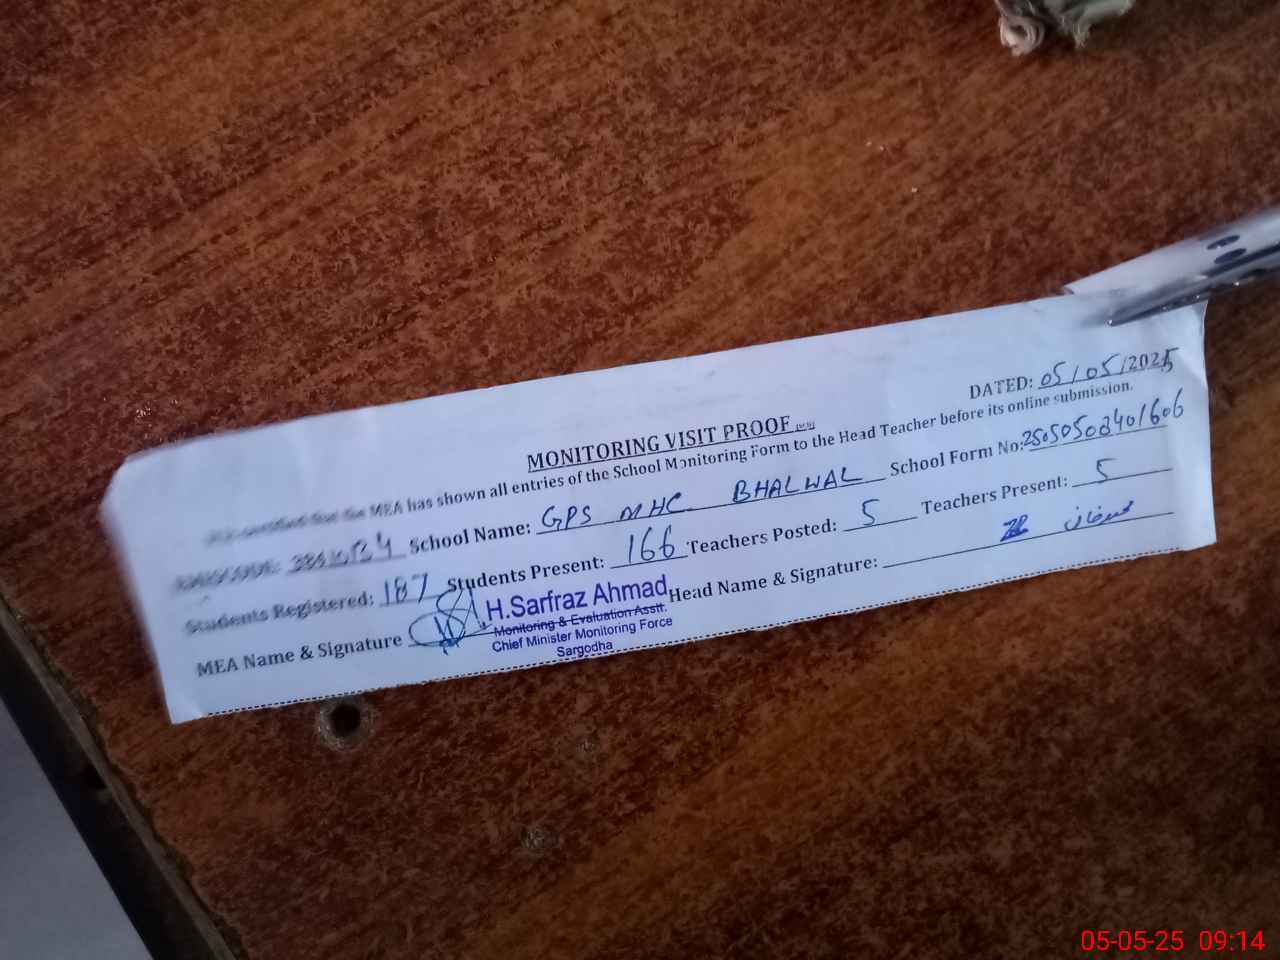 DATED: 05/05/2025
MONITORING VISIT PROOF
the MEA has shown all entries of the School Monitoring Form to the Head Teacher before its online submission.
School Name: GPS MHC BHALWAL School Form No:
Students Registered: 187 Students Present: 166 Teachers Posted: 5 Teachers Present: 5
MEA Name & Signature H.Sarfraz Ahmad Head Name & Signature:
Monitoring & Evaluation Asstt.
Chief Minister Monitoring Force
Sargodha
05-05-25 09:14